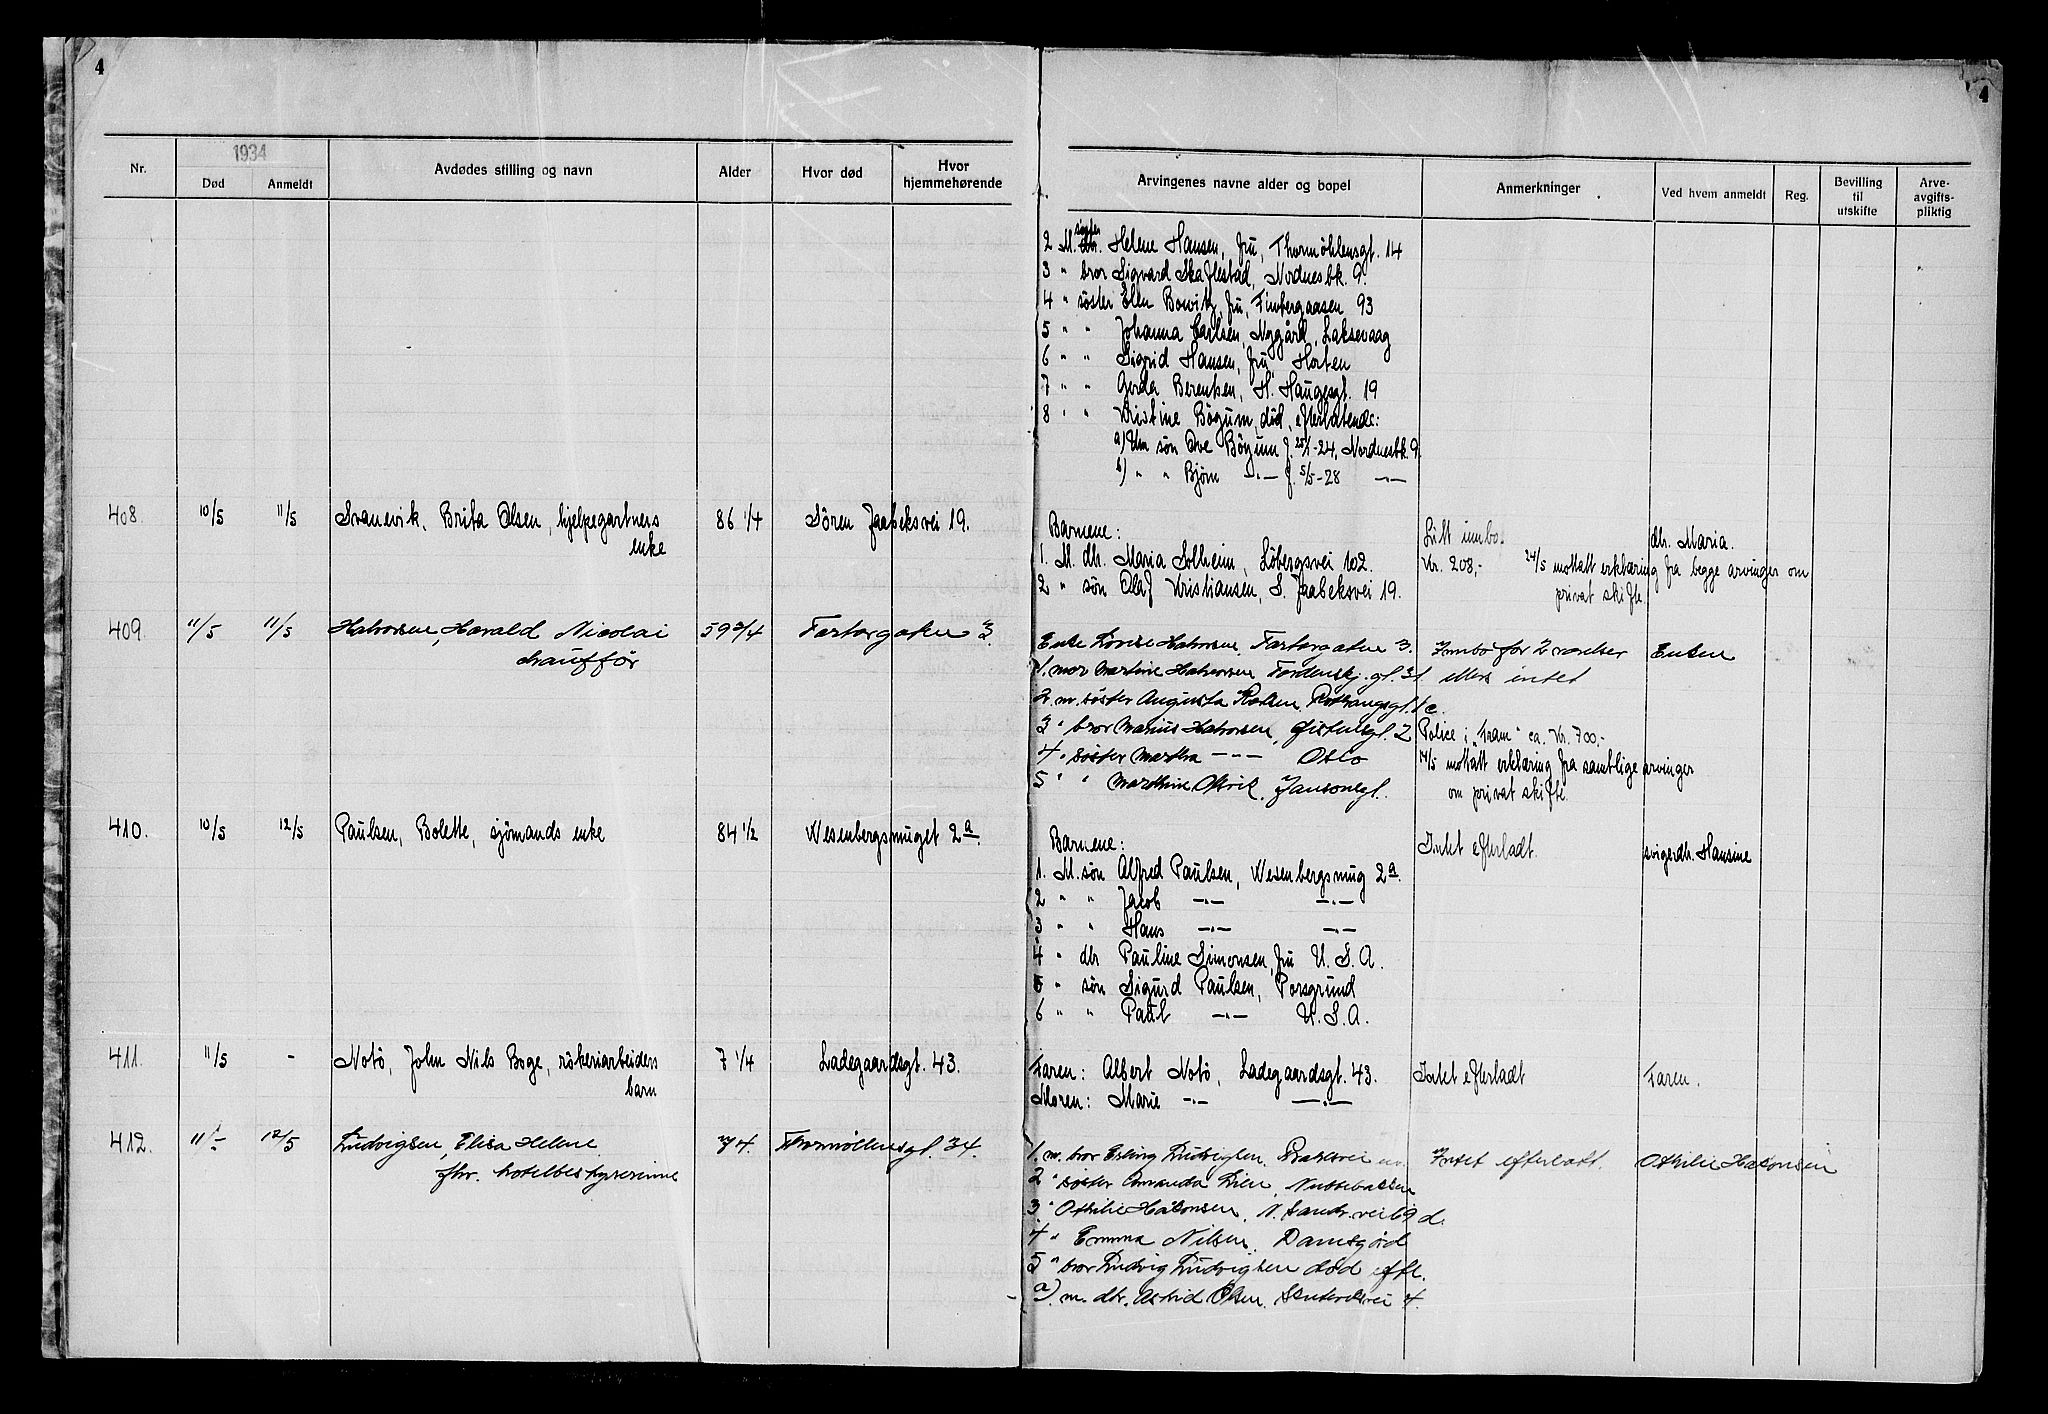 4
4
Nr.
1934
Død
Anmeldt
Avdødes stilling og navn
Alder
Hvor død
Hvor
hjemmehørende
Arvingenes navne alder og bopel
Anmerkninger
Ved hvem anmeldt
Reg.
Bevilling
til
utskifte
Arve-
avgifts-
pliktig
søster
2 M. Helene Hansen, fru, Thormöhlensgt. 14
3 " bror Sigvard Skaflestad, Nordnesbk. 9.
4 " söster Elen Bowitz, fru, 93
5 " " Johanna Carlsen, Nygård, Laksevaag
6 " " Sigrid Hansen, fru Horten
7 " " Gerda Berentsen, H. Haugesgt. 19
8 " " Kristine Bögum, död, efterlatende:
a) Um sön Ove Bögum f. 25/1-24, Nordnesbk. 9.
b) " " Bjørn -"- f. 5/5-28 -"-
408. 10/5 11/5 Svanevik, Brita Olsen, hjelpegartners 86 1/4 Sören Jaabeksvei 19.
enke
Barnene: Litt innbo dtr. Maria.
1. M. dtr. Maria Solheim, Löbergsvei 102. Kr. 208,- 24/5 mottatt erklæring fra begge arvinger om
2 " sön Olaf Kristiansen, S. Jaabeksvei 19. privat skifte.
409. 11/5 11/5 Halvorsen, Harald Nicolai 59 3/4 3
chaufför
Enke Lovise Halvorsen, 3. Innbo for 2 værelser Enken
1. mor Martine Halvorsen 31 ellers intet
2 m. söster Augusta
3 " bror Marius Halvorsen, 2 Police i "Fram" ca. Kr. 700,-
4 " söster Martha -"- Oslo 14/5 mottatt erklæring fra samtlige arvinger
5 " " Jansonsgt. om privat skifte.
410. 10/5 12/5 Paulsen, Bolette, sjömands enke 84 1/2 Wesenbergsmuget 2a.
Barnene: Intet efterladt. svigerdtr. Hansine
1. M. sön Alfred Paulsen, Wesenbergsmug 2a.
2 " " Jacob -"- -"-
3 " " Hans -"- -"-
4 " dtr Pauline Simonsen, fru U.S.A.
5 " sön Sigurd Paulsen, Porsgrund
6 " " Paul -"- U.S.A.
411. 11/5 - Notö, John Nils Boge, rökeriarbeiders 7 1/4 Ladegaardsgt. 43.
barn
Faren: Albert Notö, Ladegaardsgt. 43. Intet efterladt Faren.
Moren: Marie -"- -"-
412. 11/- 12/5 Ludvigsen, Elisa Helene 34.
fhv. hotelbestyrerinne
1. m. bror Erling Ludvigsen. Intet efterlatt. Othilie Hakonsen
2 " söster Amanda Lien,
3 " Othilie Hakonsen, 69 d.
4 " Emma Nilsen. Damsgård
5 " bror Ludvig Ludvigsen död efl.
a) m. dtr. Astrid Olsen. 4.